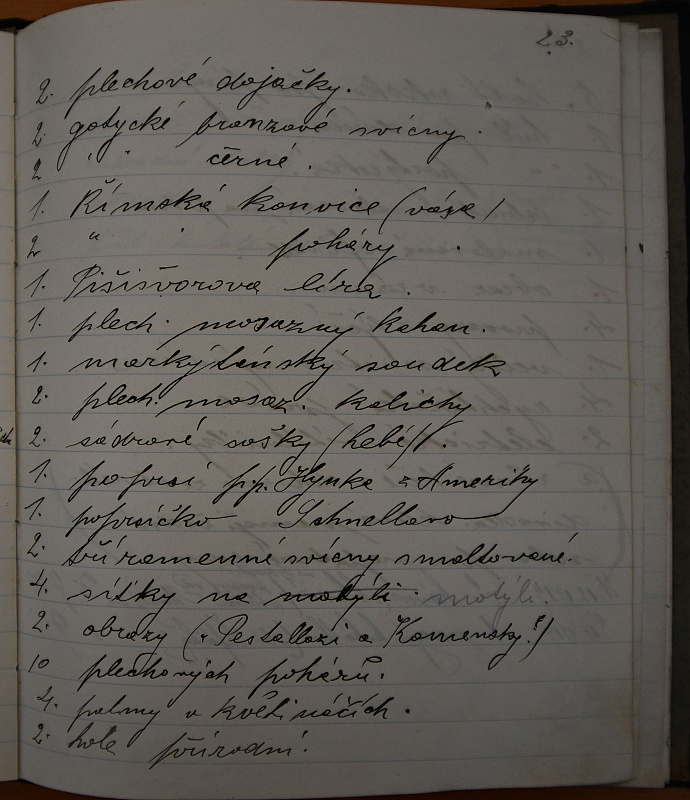 23.
2. plechové dojačky.
2. gotycké bronzové svícny.
2 " " černé.
1. Římská konvice (vása)
2 " " poháry.
1. Pišišvorova líra.
1. plech. mosazný kahan.
1. markytánský soudek
2. plech. mosaz. kalichy
2. sádrové sošky (hebé)).
1. poprsí pp. Hynka z Ameriky
1. poprsíčko Schnellovo
2. tříramenné svícny smaltované.
4. síťky na motýli. motýli.
2. obrazy (Pestallozi a Komenský!)
10 plechových pohárů.
4. palmy v květináčích.
2. hole přírodní.